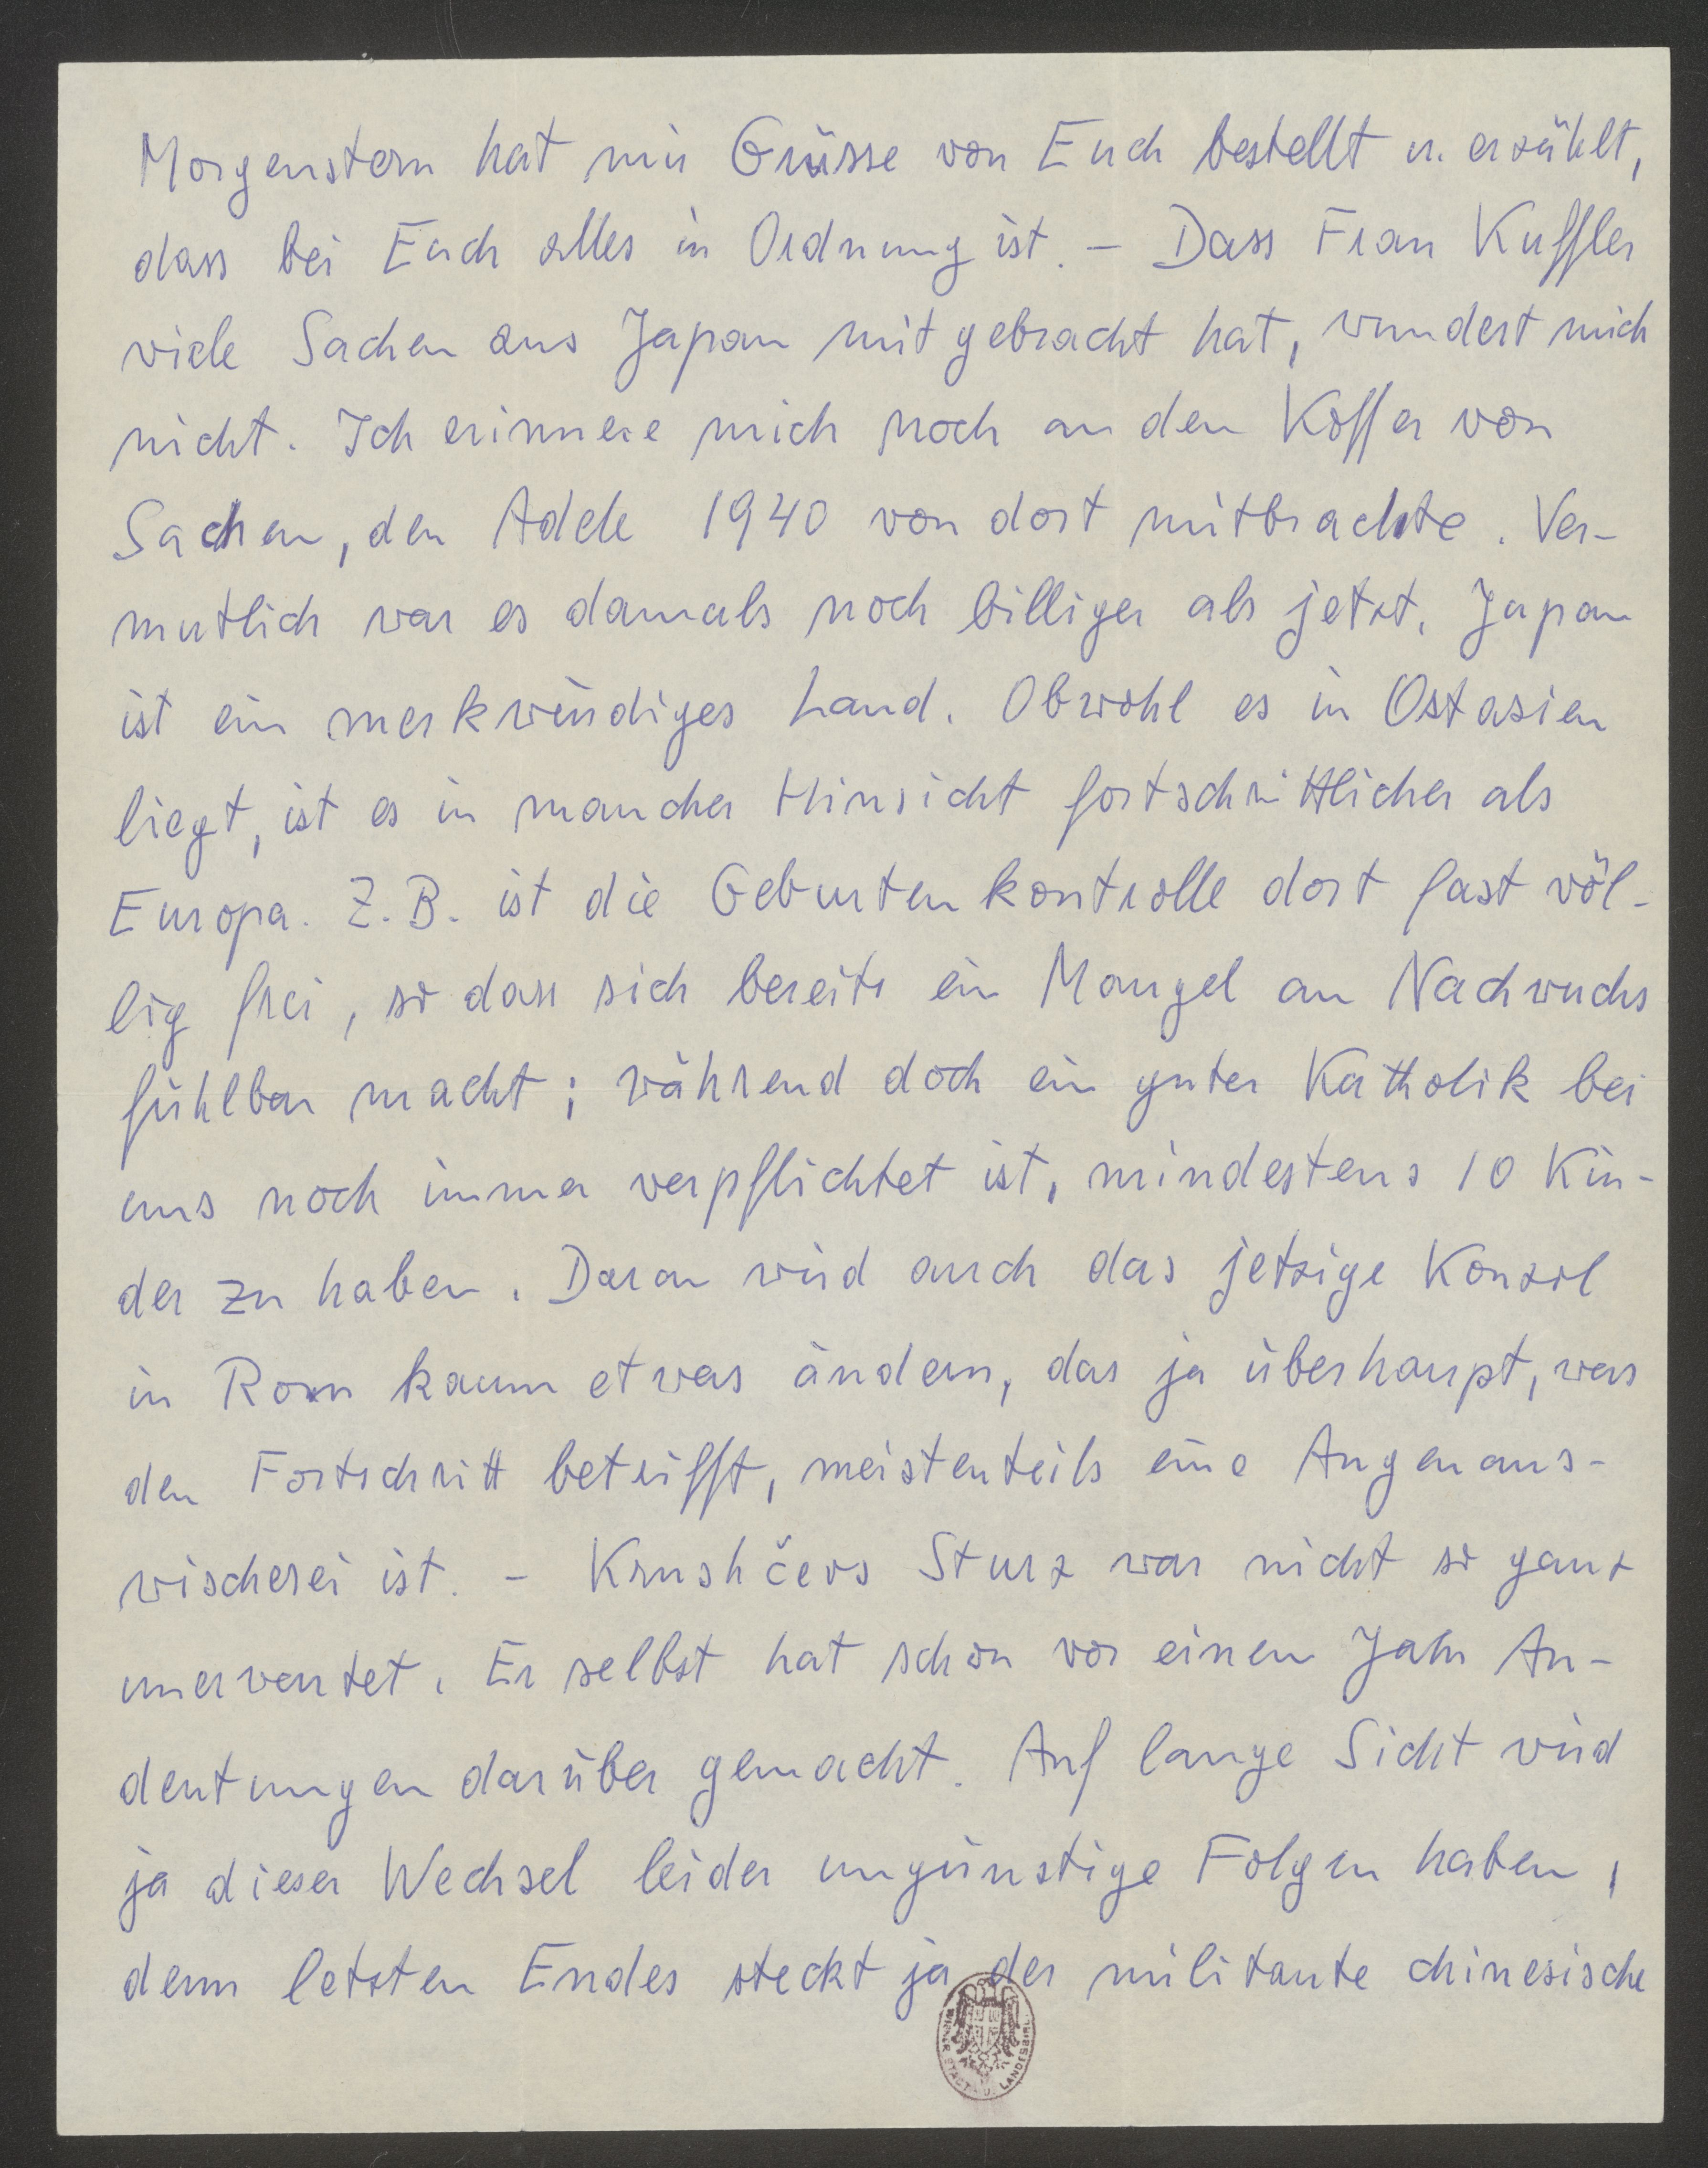 Morgenstern hat mir Grüsse von Euch bestellt u. erzählt,
dass bei Euch alles in Ordnung ist. – Dass Frau Kuffler
viele Sachen aus Japan mitgebracht hat, wundert mich
nicht. Ich erinnere mich noch an den Koffer von
Sachen, den Adele 1940 von dort mitbrachte. Ver-
mutlich war es damals noch billiger als jetzt. Japan
ist ein merkwürdiges Land. Obwohl es in Ostasien
liegt, ist es in mancher Hinsicht fortschrittlicher als
Europa. Z.B. ist die Geburtenkontrolle dort fast völ-
lig frei, so dass sich bereits ein Mangel an Nachwuchs
fühlbar macht; während doch ein guter Katholik bei
uns noch immer verpflichtet ist, mindestens 10 Kin-
der zu haben. Daran wird auch das jetzige Konzil
in Rom kaum etwas ändern, das ja überhaupt, was
den Fortschritt betrifft, meistenteils eine Augenaus-
wischerei ist. – Krushčevs Sturz war nicht so ganz
unerwartet. Er selbst hat schon vor einem Jahr An-
deutungen darüber gemacht. Auf lange Sicht wird
ja dieser Wechsel leider ungünstige Folgen haben,
denn letzten Endes steckt ja der militante chinesische
WIENER STADT- U. LANDESBIBL.